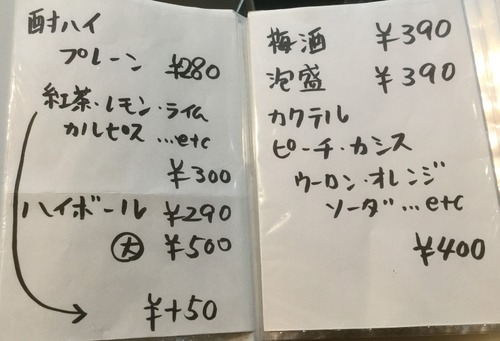 酎ハイ
プレーン ¥280
紅茶・レモン・ライム
カルピス …etc
¥300
ハイボール ¥290
大 ¥500
¥+50
梅酒 ¥390
泡盛 ¥390
カクテル
ピーチ・カシス
ウーロン・オレンジ
ソーダ…etc
¥400